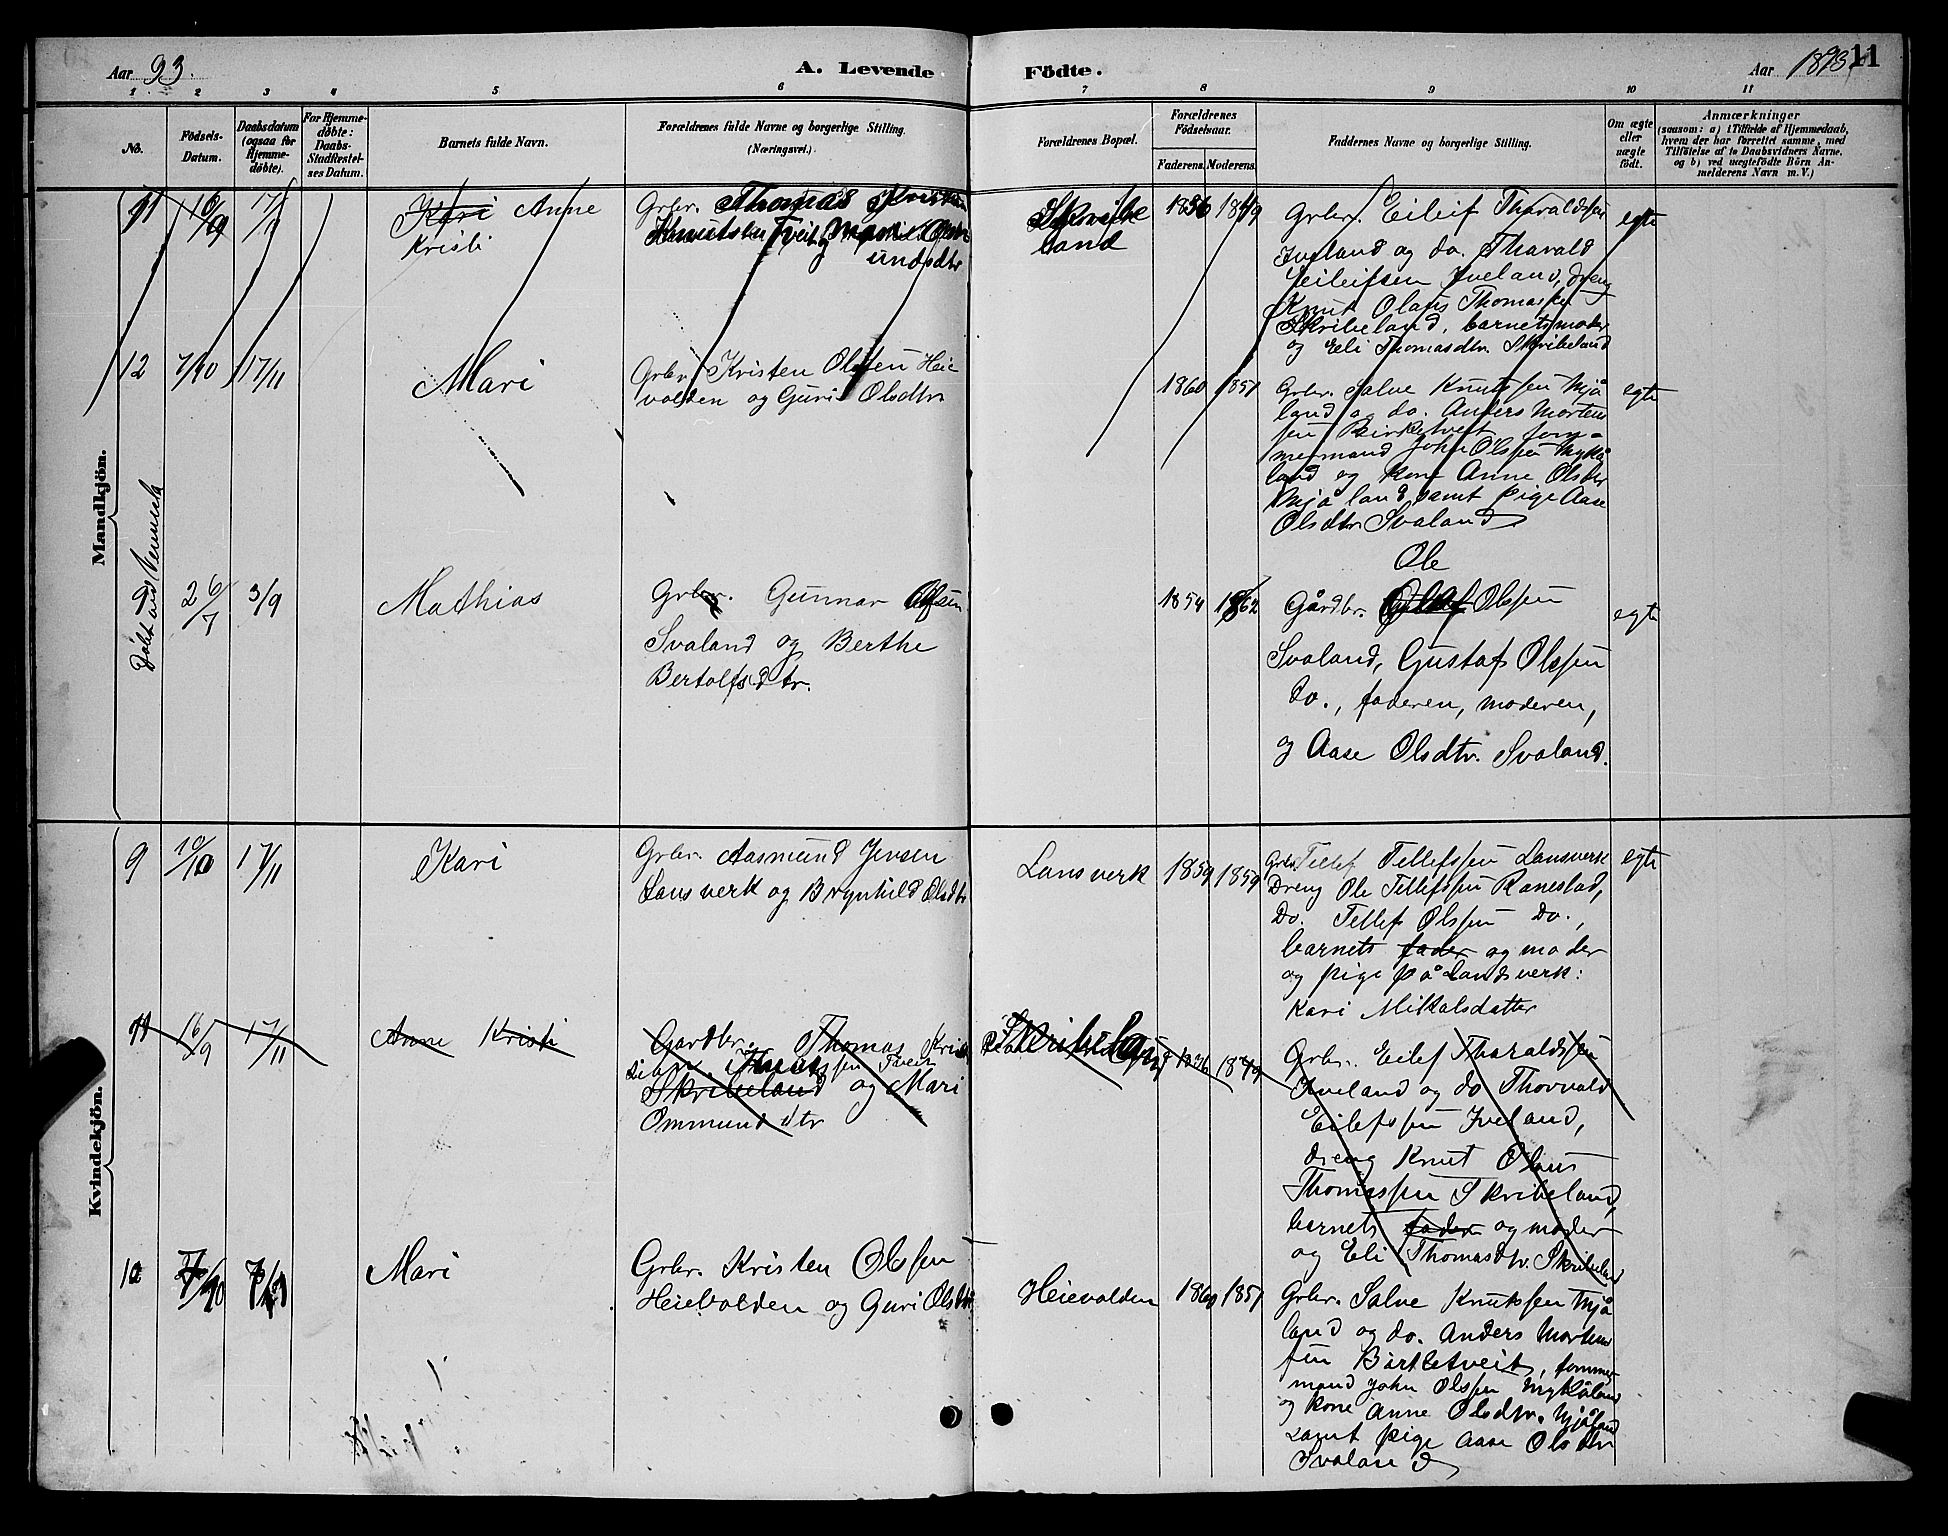 Aar 93.
A. Levende
Födte.
Aar 1893.
11
1 2 3 4 5 6 7 8 9 10 11
No.
Födsels-
Datum.
Daabsdatum
(ogsaa for
Hjemme-
døbte).
For Hjemme-
døbte:
Daabs-
Stadfæstel-
ses Datum.
Barnets fulde Navn.
Forældrenes fulde Navne og borgerlige Stilling.
(Næringsvei.)
Forældrenes Bopæl.
Forældrenes
Födselsaar.
Faderens.
Moderens.
Faddernes Navne og borgerlige Stilling.
Om ægte
eller
uægte
födt.
Anmærkninger
(saasom: a) i Tilfælde af Hjemmedaab,
hvem der har forrettet samme, med
Tilföielse af to Daabsvidners Navne,
og b) ved uægtefödte Börn An-
melderens Navn m. V.)
Mandkjön.
11 16/9 17/11
Kari Anne
Kristi
Grbr. Thomas
Knutsen Tveit og Mari Omm
undsdtr
Skribe
land
1836 1849
Grbr. Eilef Tharaldsen
Iveland og do. Tharald
Eileifsen Iveland, dreng
Knut Olaus Thomassen
Skribeland, barnets moder
og Eli Thomasdtr. Skribeland
egte
12 7/10 17/11
Mari
Grbr. Kristen Olssen Heie
volden og Guri Olsdtr
1860 1851
Grbr. Salve Knutssen Mjå
land og do. Anders Mortens
sen Birketveit, tøm-
mermand John Olssen Mykå
land og kone Anne Olsdtr
Mjåland, samt pige Aase
Olsdtr. Svaland
egte
Døbt ved Vennesla
9 26/7 3/9
Mathias
Grbr. Gunnar Olsen
Svaland og Berthe
Bertolfsdtr.
1854 1862
Ole
Gårdbr. Olssen
Svaland, Gustaf Olssen
do., faderen, moderen,
og Aase Olsdtr. Svaland.
egte
Kvindekjön.
9 10/10 17/11
Kari
Grbr. Aasmund Jensen
Lansverk og Brynhild Olsdtr
Lansverk
1859 1859
Grbr. Tellef Tellefssen Lansverk
Dreng Ole Tellefssen Ranestad,
Do. Tellef Olssen Do.,
barnets fader og moder
og pige på Landsverk:
Kari Mikalsdatter
egte
11 16/9 17/11
Anne Kristi
Gardbr. Thomas Kris
Knutssen Tveit
Skribeland og Mari
Ommundsdtr
Skribeland
1836 1849
Grbr. Eilef Tharaldssen
Iveland og do Thorvald
Eilefssen Iveland,
dreng Knut Olaus
Thomassen Skribeland,
barnets fader og moder
og Eli Thomasdtr. Skribeland
10 7/10
Mari
Grbr. Kristen Olssen
Heievolden og Guri Olsdtr
Heievolden
1860 1851
Grbr. Salve Knutssen Mjå
land og do. Anders Mortens
sen Birketveit, tømmer
mand John Olssen Mykåland
og kone Anne Olsdtr. Mjåland
samt pige Aase Olsdtr
Svaland